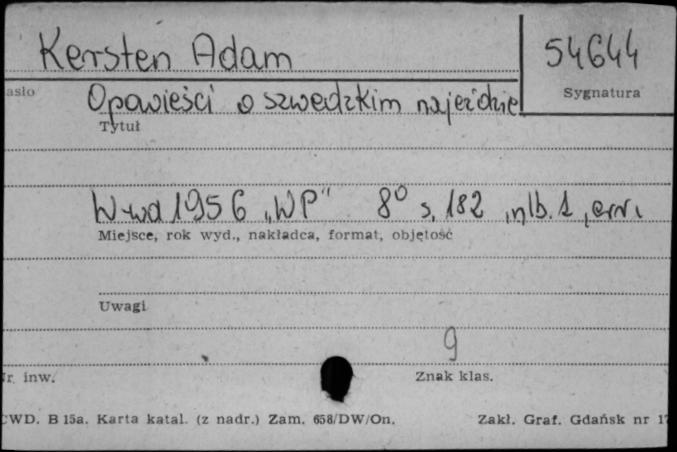 Kersten Adam
54644
asło
Sygnatura
Opowieści o szwedzkim najeździe
Tytuł
W-wa 1956 „WP" 8° s. 182, nlb. 1,
Miejsce, rok wyd., nakładca, format, objętość
Uwagi
9
Nr. inw.
Znak klas.
CWD. B 15a. Karta katal. (z nadr.) Zam. 658/DW/On.
Zakł. Graf. Gdańsk nr 1